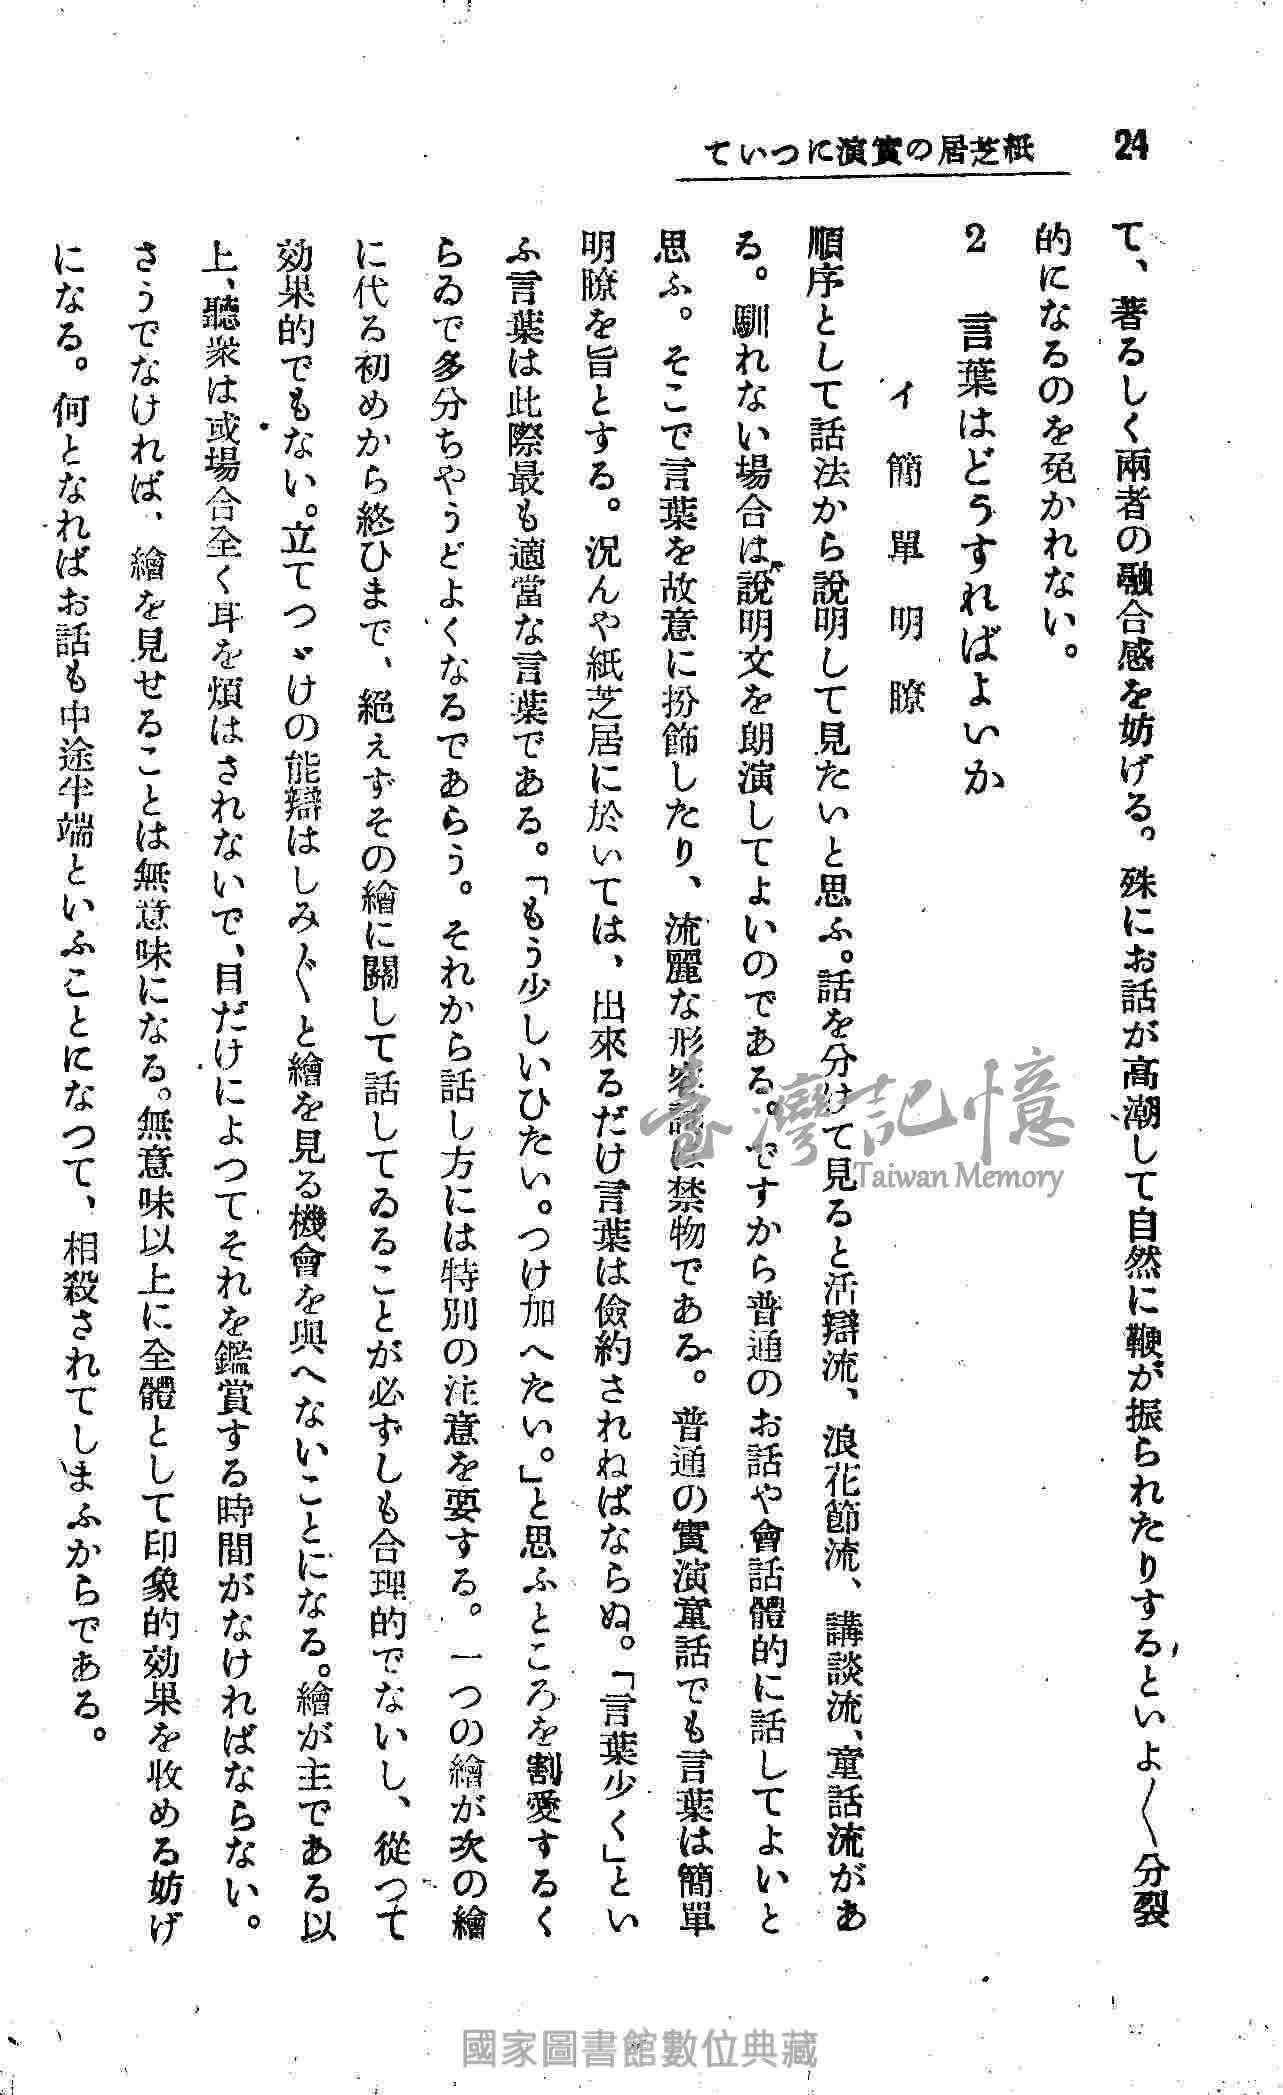 24
紙芝居の實演について
て、著るしく兩者の融合感を妨げる。殊にお話が高潮して自然に鞭が振られたりするといよ〱分裂
的になるのを免かれない。
2 言葉はどうすればよいか
イ 簡單明瞭
順序として話法から說明して見たいと思ふ。話を分けて見ると活辯流、浪花節流、講談流、童話流があ
る。馴れない場合は說明文を朗演してよいのである。ですから普通のお話や會話體的に話してよいと
思ふ。そこで言葉を故意に扮飾したり、流麗な形容詞は禁物である。普通の實演童話でも言葉は簡單
明瞭を旨とする。況んや紙芝居に於いては、出來るだけ言葉は儉約されねばならぬ。「言葉少く」とい
ふ言葉は此際最も適當な言葉である。「もう少しいひたい。つけ加へたい。」と思ふところを割愛するく
らゐで多分ちやうどよくなるであらう。それから話し方には特別の注意を要する。一つの繪が次の繪
に代る初めから終ひまで、絕えずその繪に關して話してゐることが必ずしも合理的でないし、從つて
効果的でもない。立てつゞけの能辯はしみ〲と繪を見る機會を與へないことになる。繪が主である以
上、聽衆は或場合全く耳を煩はされないで、目だけによつてそれを鑑賞する時間がなければならない。
さうでなければ、繪を見せることは無意味になる。無意味以上に全體として印象的効果を收める妨げ
になる。何となればお話も中途半端といふことになつて、相殺されてしまふからである。
臺灣記憶
Taiwan Memory
國家圖書館數位典藏